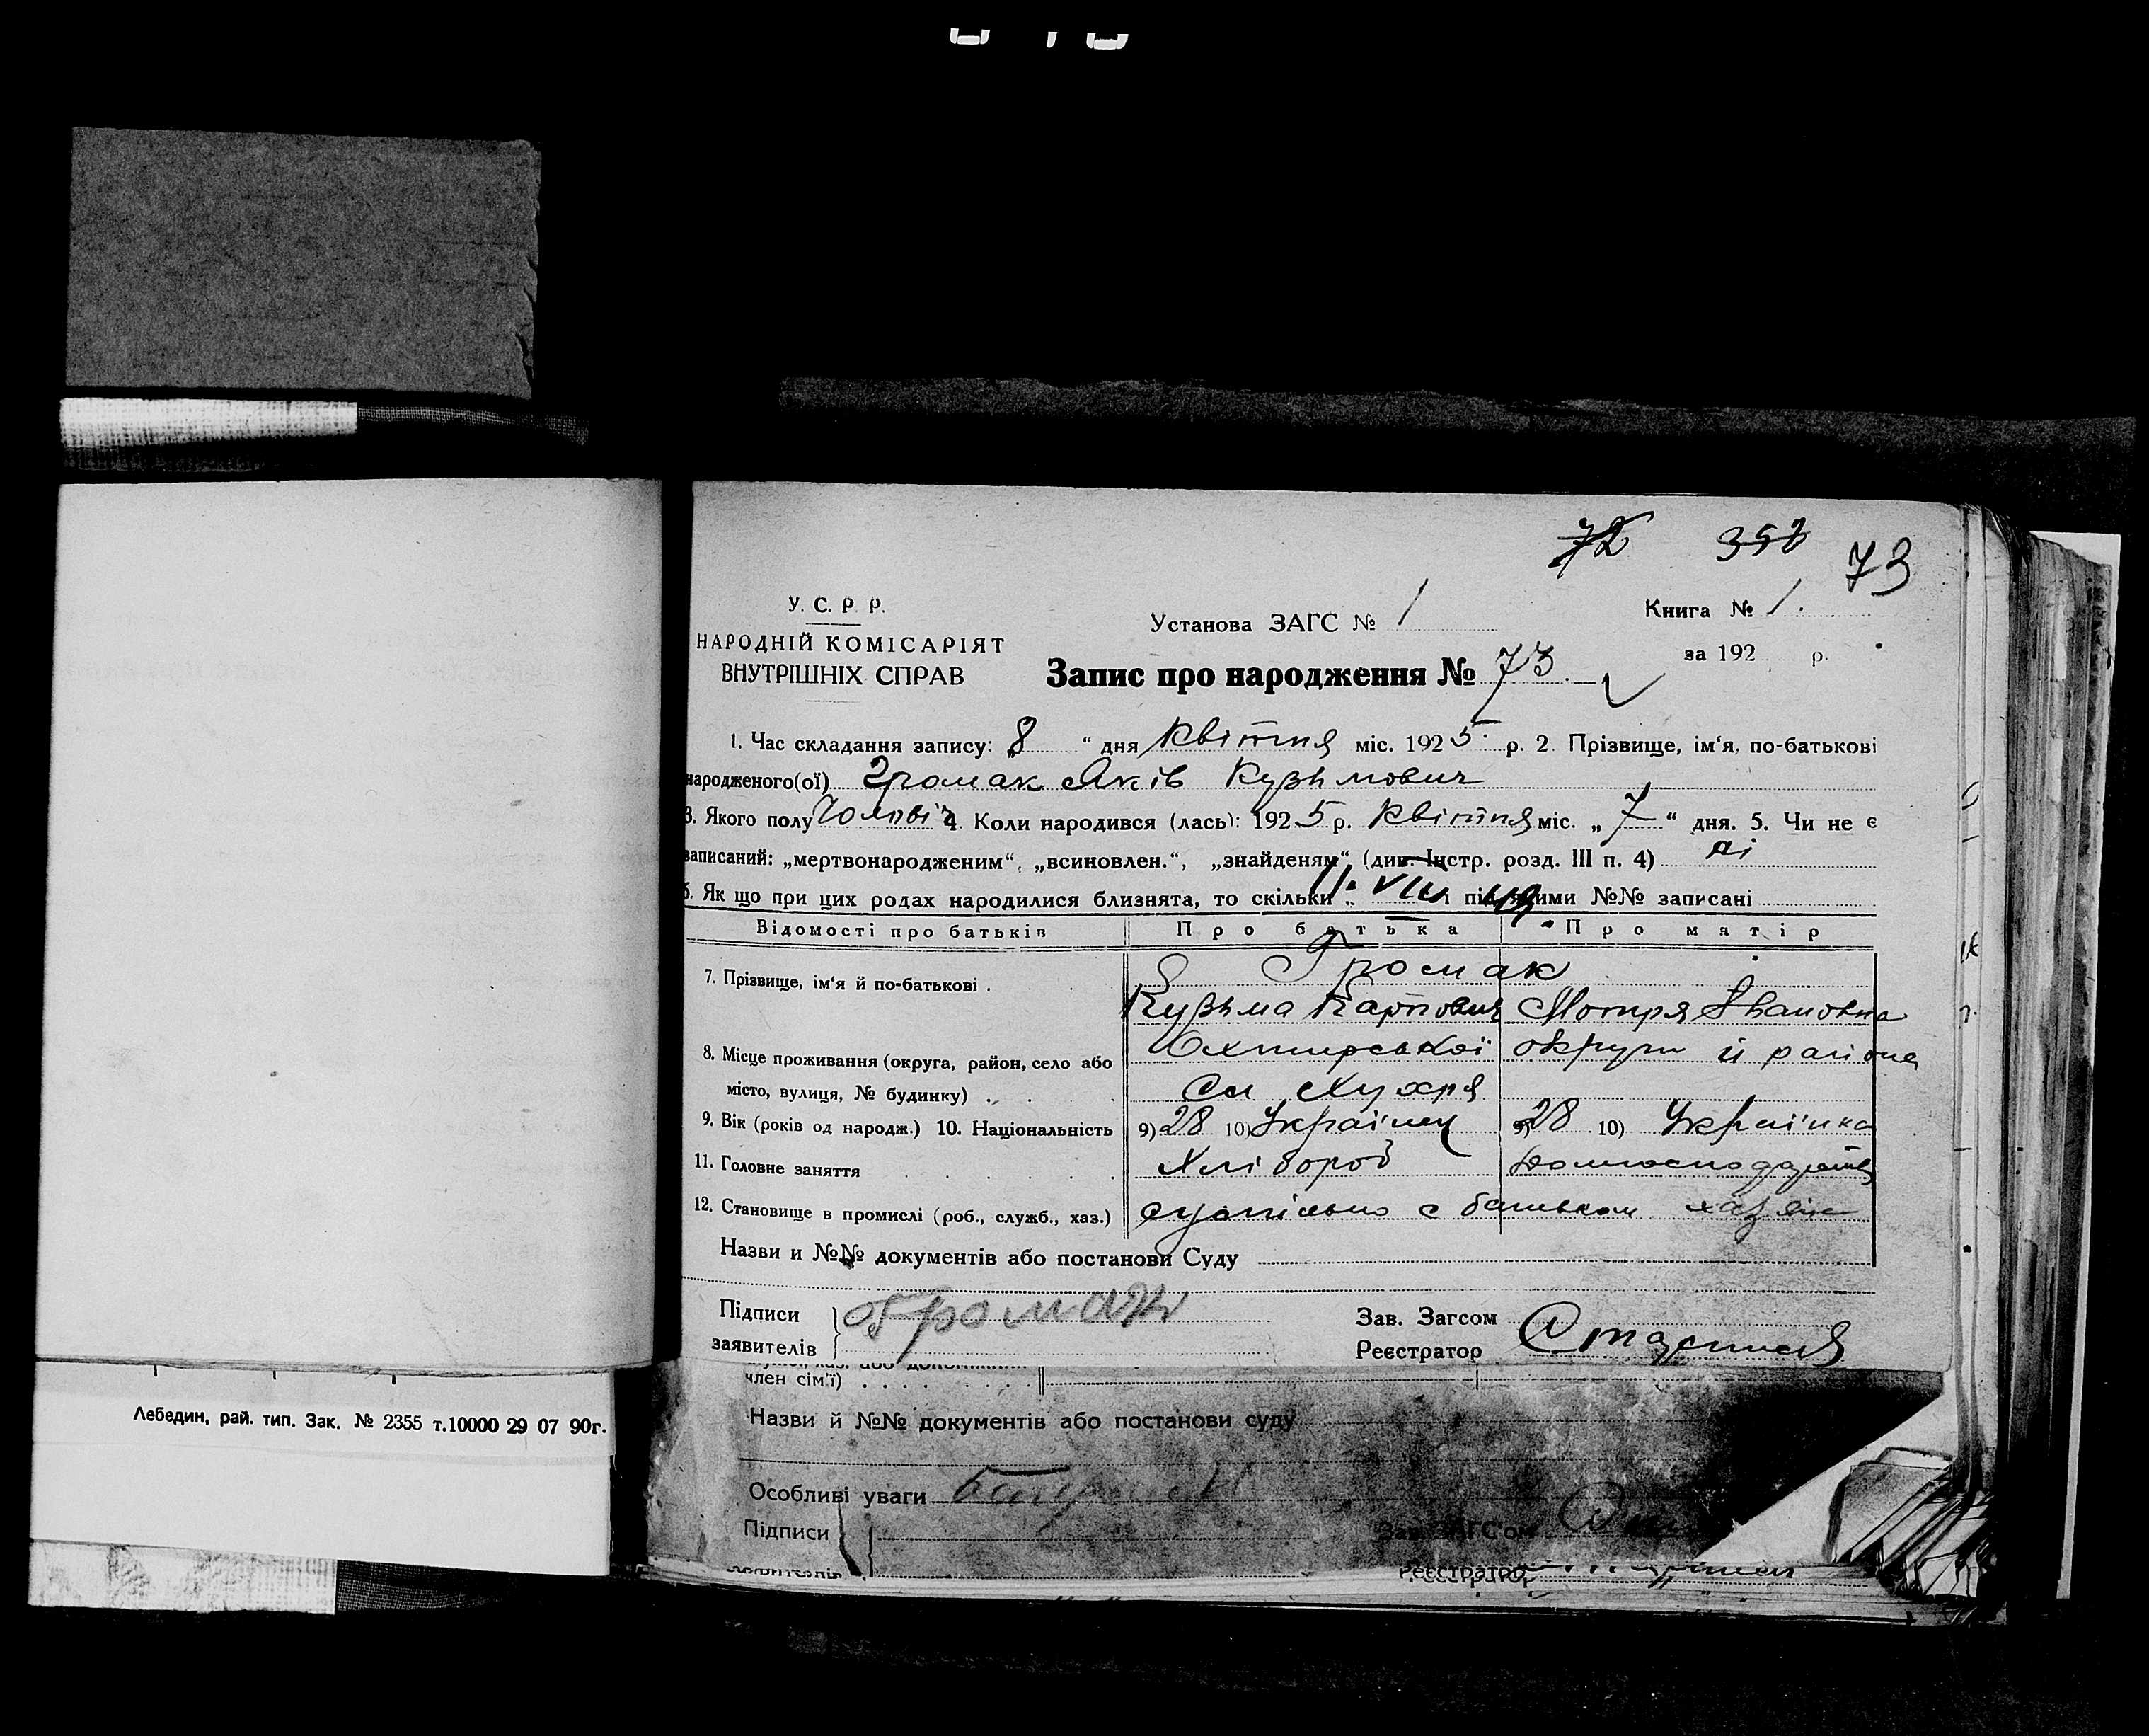 72 352 73
У. С. Р. Р.
НАРОДНІЙ КОМІСАРІЯТ
ВНУТРІШНІХ СПРАВ
Установа ЗАГС № 1
Книга № 1.
за 192 р.
Запис про народження № 73.
1. Час складання запису: 8 “ дня Квітня міс. 1925 р. 2. Прізвище, ім‘я, по-батькові
народженого(ої) Громак Яків Кузьмович
3. Якого полу Чоловіч 4. Коли народився (лась): 1925 р. Квітня міс. „ 7 “ дня. 5. Чи не є
записаний: „мертвонародженим“, „всиновлен.“, „знайденям“ (див. Інстр. розд. III п. 4) ні
6. Як що при цих родах народилися близнята, то скільки й під якими №№ записані
Відомості про батьків Про батька Про матір
7. Прізвище, ім‘я й по-батькові . Громак
Кузьма Карпович Мотря Ивановна
8. Місце проживання (округа, район, село або Охтирської округи й района
місто, вулиця, № будинку) . . . Сл Хухря
9. Вік (років од народж.) 10. Національність 9) 28 10) Українец 9) 28 10) Українка
11. Головне заняття Хлібороб
12. Становище в промислі (роб., служб., хаз.) супільно с батьком хазяїн
Назви и №№ документів або постанови Суду
Підписи Громак Зав. Загсом
заявителів Реєстратор
член сім'ї)
Лебедин, рай. тип. Зак. № 2355 т.10000 29 07 90г.
Назви й №№ документів або постанови суду
Особливі уваги
Підписи Зав. ЗАГС'ом
Реєстратор